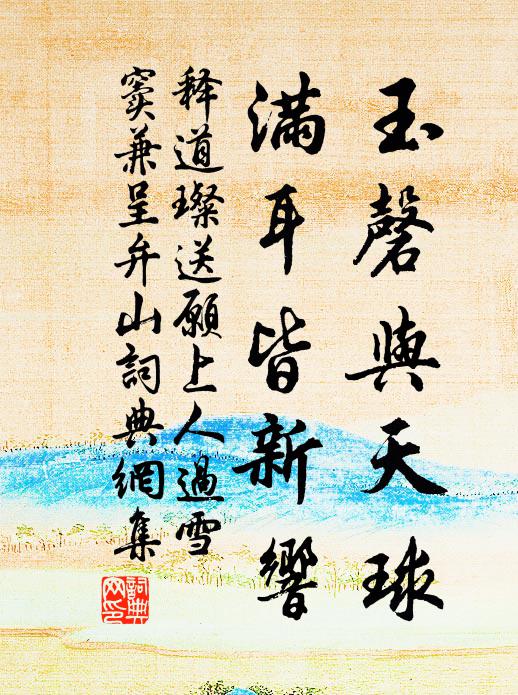 玉磬與天球
滿耳皆新響
释道璨送願上人過雪
竇兼呈弁山詞典網集
詞典